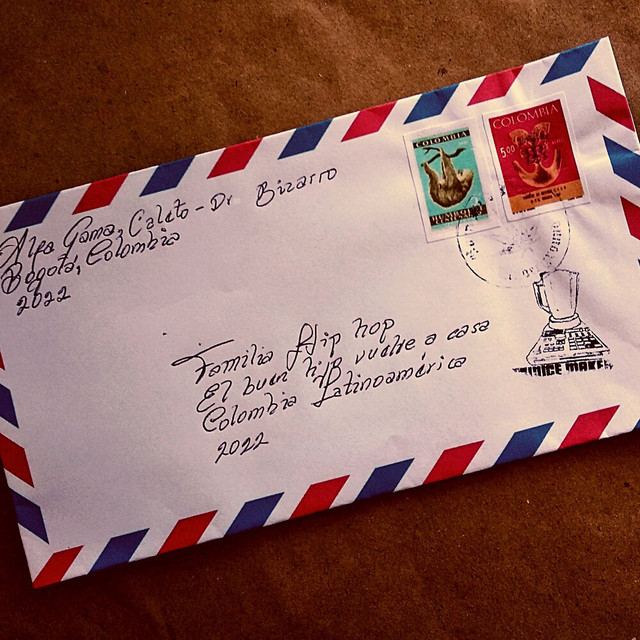 Alfa Gama, Caleto - Dr Bizarro
Bogotá, Colombia
2022
COLOMBIA
COLOMBIA
5.00
Familia Hip hop
El buen hijo vuelve a casa
Colombia Latinoamérica
2022
JUICE MAKER